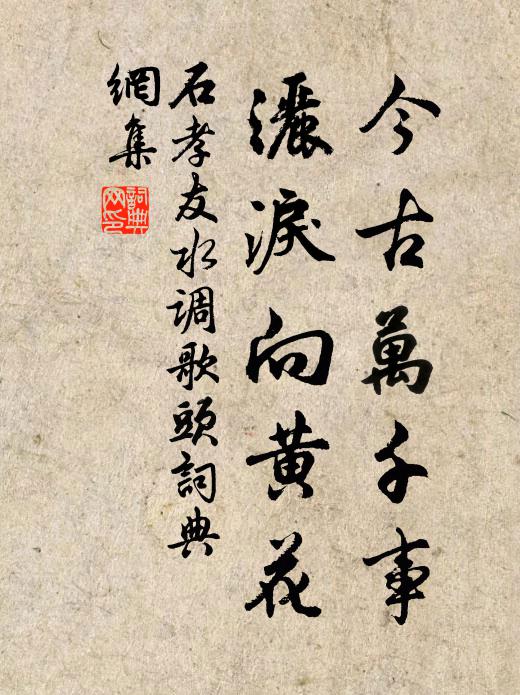 今古萬千事
灑淚向黄花
石孝友水调歌頭詞典
網集
詞典網印